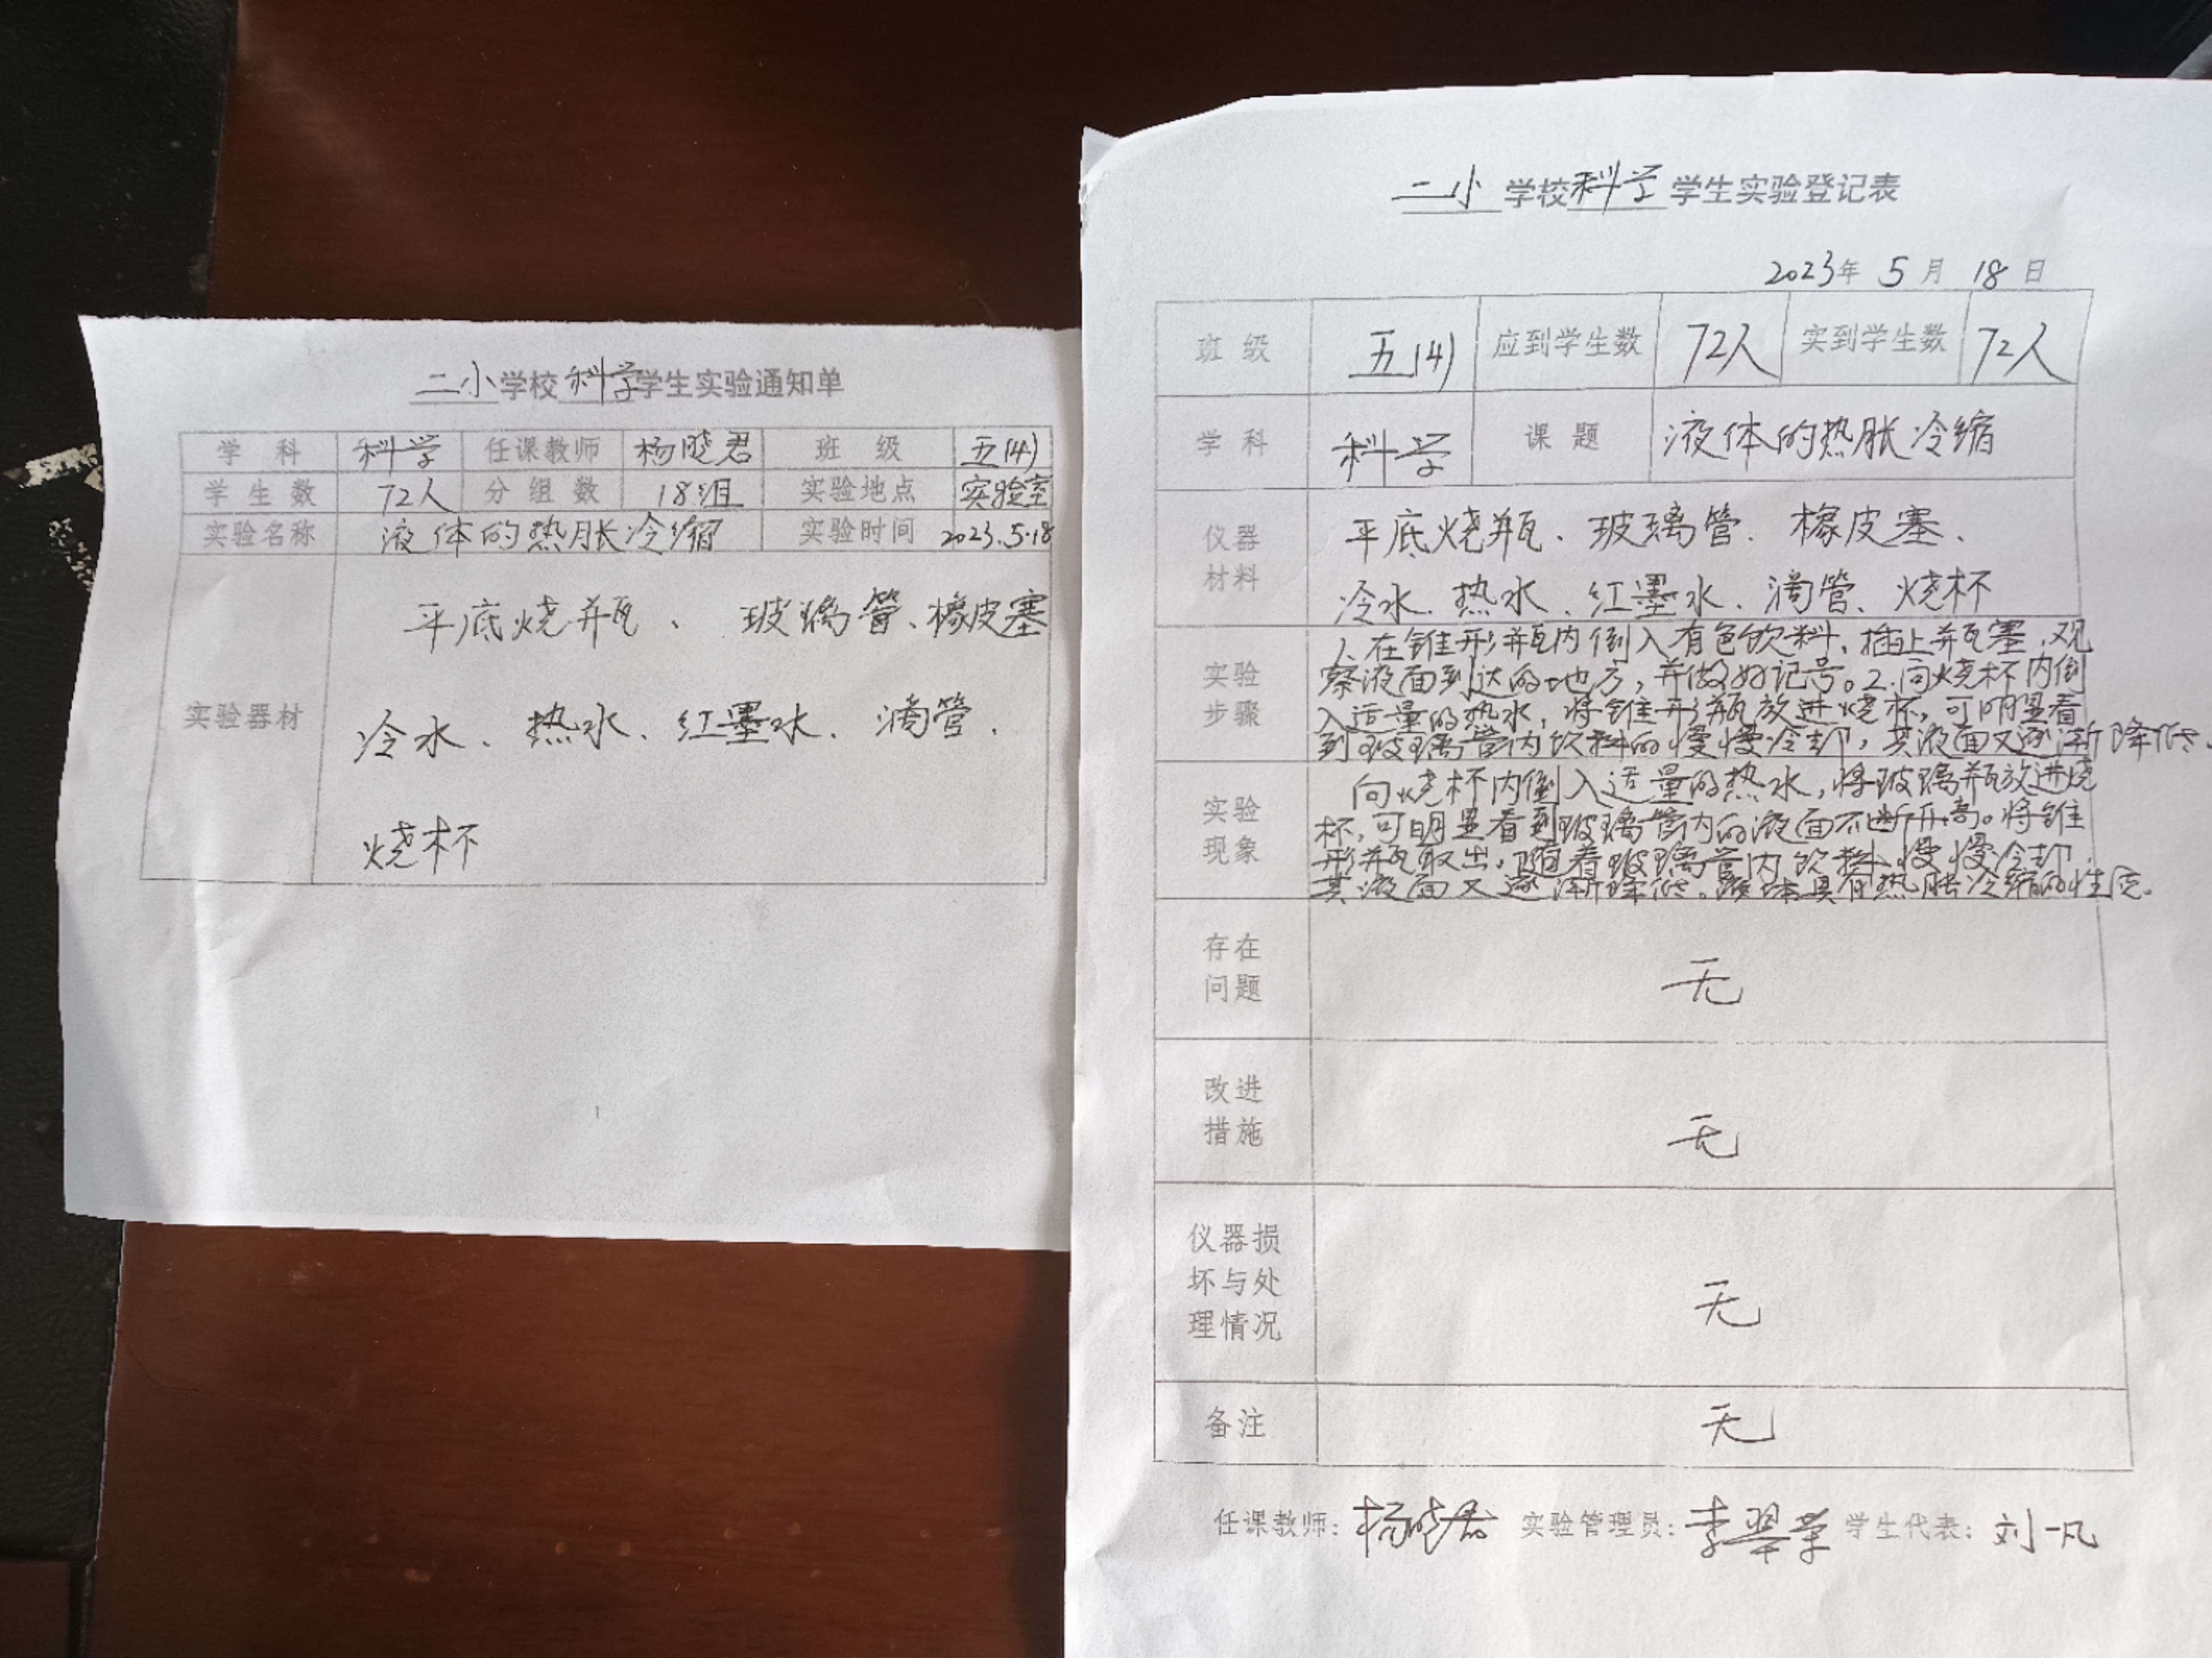 二小学校科学学生实验通知单
学科 科学 任课教师 杨晓君 班级 五(4)
学生数 72人 分组数 18组 实验地点 实验室
实验名称 液体的热胀冷缩 实验时间 2023.5.18
平底烧瓶、玻璃管、橡皮塞
实验器材
冷水、热水、红墨水、滴管、
烧杯
二小学校科学学生实验登记表
2023年5月18日
班级 五(4) 应到学生数 72人 实到学生数 72人
学科 科学 课题 液体的热胀冷缩
仪器
材料
平底烧瓶、玻璃管、橡皮塞、
冷水、热水、红墨水、滴管、烧杯
实验
步骤
1、在锥形瓶内倒入有色饮料,插上瓶塞,观
察液面到达的地方,并做好记号。2.向烧杯内倒
入适量的热水,将锥形瓶放进烧杯,可明显看
到玻璃管内饮料的慢慢冷却,其液面又逐渐降低。
实验
现象
向烧杯内倒入适量的热水,将玻璃瓶放进烧
杯,可明显看到玻璃管内的液面不断升高。将锥
形瓶取出,随着玻璃管内饮料慢慢冷却,
其液面又逐渐降低。液体具有热胀冷缩的性质。
存在
问题
无
改进
措施
无
仪器损
坏与处
理情况
无
备注 无
任课教师:杨晓君 实验管理员:李翠学 学生代表:刘一凡